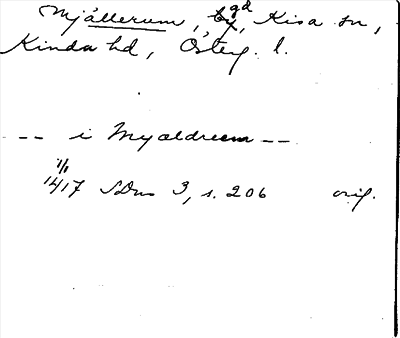 Mjällerum, by, gd, Kisa sn,
Kinda hd, Österg. l.
-- i Myældreem --
1/1
1417 SDns 3, s. 206 orig.